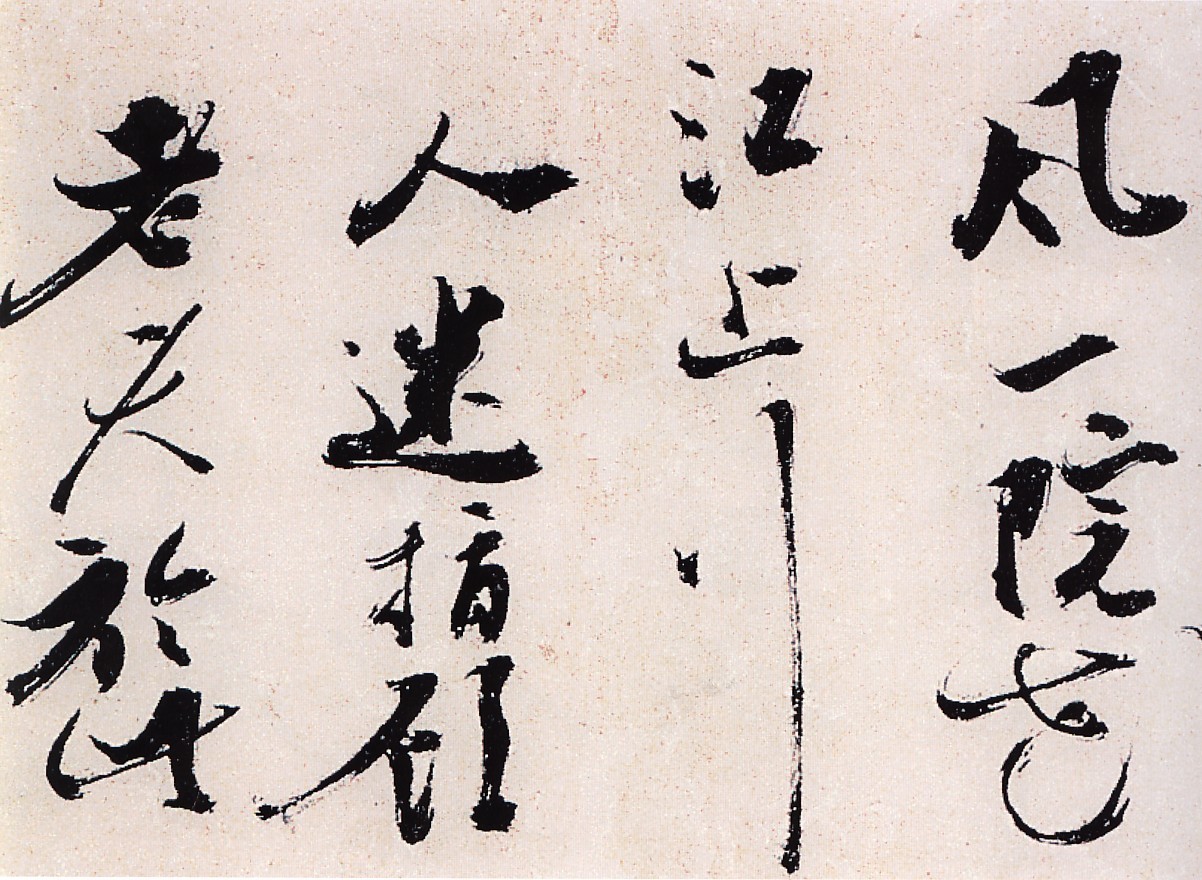 风一院香
江上
人迷指顧
老夫於此